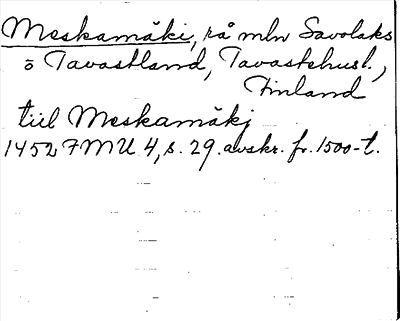 Meskamäki, rå mln Savolaks
o Tavastland, Tavastehusl.,
Finland
tiil Meskamäkj
1452 FMU 4, s. 29. avskr. fr. 1500-t.